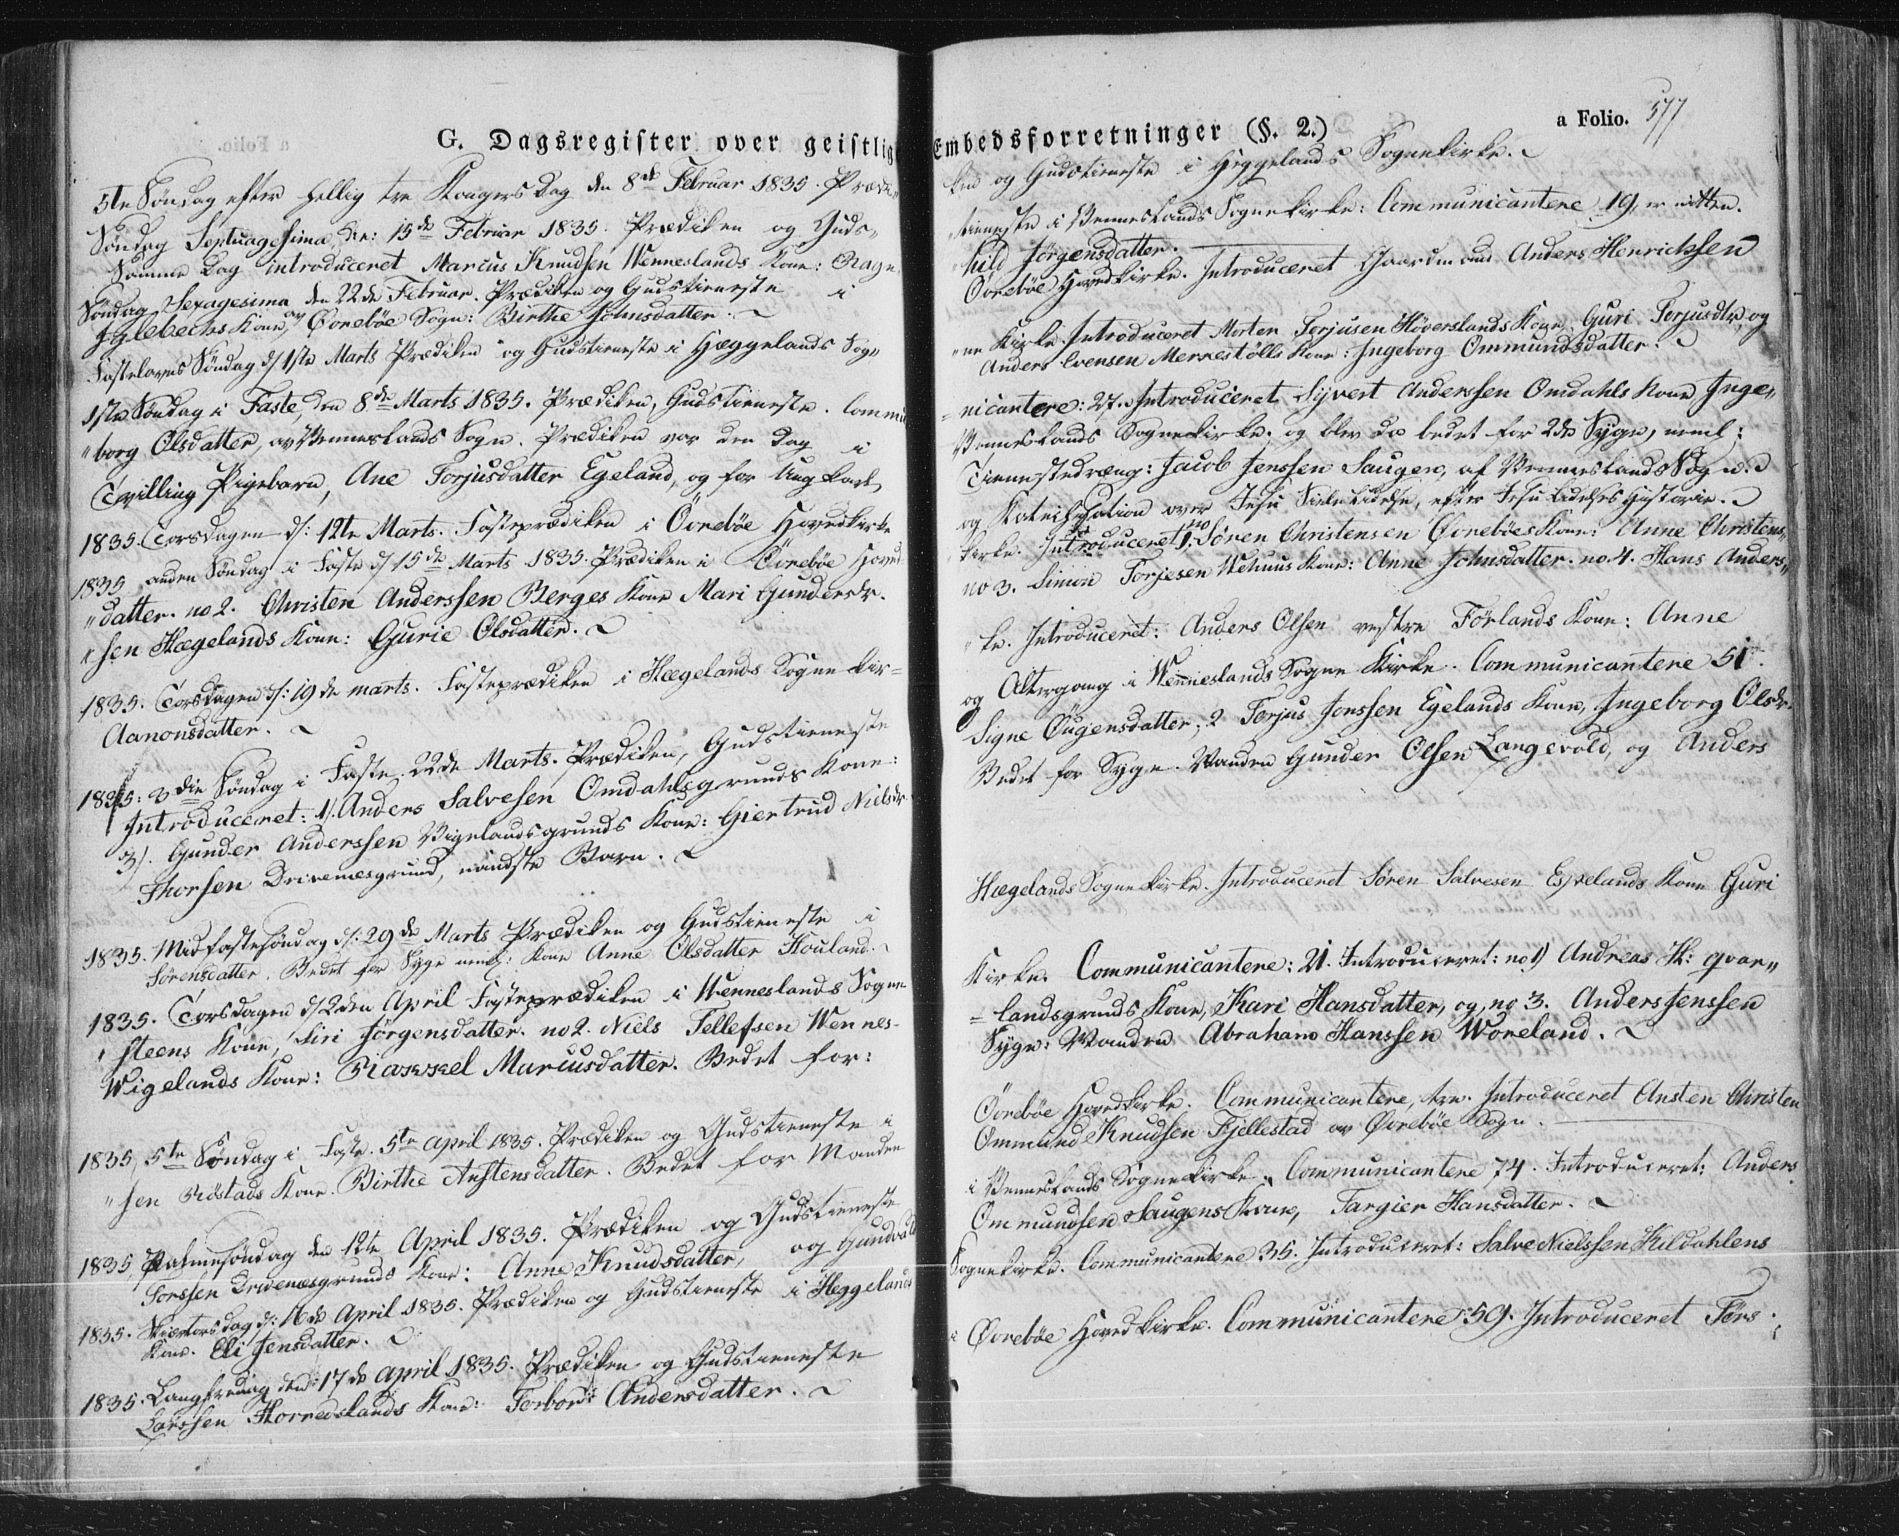 G. Dagsregister over geistlig
5te Søndag efter hellig tre Konger Dag den 8de Februar 1835. Præde„
Søndag Septuagesima, den: 15de Februar 1835. Prædiken og Guds„
Samme Dag introduceret Marcus Knudsen Wenneslands Kone: Ragn„
Søndag Sexagesima den 22de Februar. Prædiken og Gudstieneste i
Kone, av Øvrebøe Sogn: Birthe Johnsdatter.
Fastelavns Søndag d/ 1ste Marts Prædiken og Gudstieneste i Hæggelands Sog„
1ste Søndag i Faste, den 8de Marts 1835. Prædiken, Gudstieneste. Commu
„borg Olsdatter, av Venneslands Sogn. Prædiken var den Dag i
Tvilling Pigebarn, Ane Torjusdatter Egeland, og for Ung Karl,
1835. Torsdagen d: 12te Marts. Fasteprædiken i Övrebøe Hovedkirke
1835 anden Søndag i Faste d 15de Marts 1835. Prædiken i Övrebøe Hoved
„datter. no 2. Christen Anderssen Berges Kone Mari Gundersdr.
„sen Hægelands Kone: Gurie Olsdatter.
1835. Torsdagen d: 19de marts. Fasteprædiken i Hægelands Sogne Kir=
Aanonsdatter.
1835: 3die Søndag i Faste. 22de Marts. Prædiken, Gudstieneste
Introduceret: 1/. Anders Salvesen Omdahlsgrunds Kone:
3/. Gunder Anderssen Vigelandsgrunds Kone: Giertrud Nielsdr
Thorsen Drivenesgrund, Barn.
1835. Midfastesöndag d: 29de Marts Prædiken og Gudstieneste i
Sørensdatter. Bedet for Syge neml: Kone Anne Olsdatter Houland.
1835. Torsdagen d/ 2den April Fasteprædiken i Wenneslands Sogne
„steens Kone, Siri Jörgensdatter. no 2. Niels Tellefsen Wennes-
Wigelands Kone: Marcusdatter. Bedet for:
1835, 5te Søndag i Faste. 5te April 1835. Prædiken og Gudstieneste i
„sen Röstads Kone. Birthe Austensdatter. Bedet for Manden
1835, Palmesöndag den 12te April 1835. Prædiken og Gudstieneste
Sorssen Drivenesgrunds Kone: Anne Knudsdatter, og Gundvald
1835. Skiertorsdag d: 16de April 1835. Prædiken og Gudstieneste i Heggelands
Kone. Eli Jensdatter.
1835. Langfredag den 17de April 1835. Prædiken og Gudstieneste
Larssen Horredslands Kone: Torbor Andersdatter.
Embedsforretninger (§. 2.)
a Folio. 577
ken og Gudstieneste i Heggelands Sognekirke.
„tieneste i Venneslands Sognekirke: Communicantere 19, er nitten.
„hild Jörgensdatter.
Övrebøe Hovedkirke. Introduceret Gaardmand Anders Henrichsen
„ne Kirke. Introduceret Morten Torjusen Höverslands Kone: Guri Torjusdtr, og
Anders Evensen Kone: Ingeborg Ommundsdatter.
=nicantere: 27. Introduceret Syvert Anderssen Omdahls Kone Inge„
Venneslands Sognekirke. og blev da bedet for 2de Syge, neml:
Tienestedræng: Jacob Jenssen Saugen, af Venneslands Sogn.
og Katechisation over Jesu Lidelse, efter Jesu Lidelses Historie.
kirke. Introduceret no 1. Sören Christensen Övrebøes Kone: Anne Christens„
no 3. Simon Torjesen Kone: Anne Johnsdatter. no. 4. Hans Anders„
„ke. Introduceret: Anders Olsen vestre Förlands Kone: Anne
og Altergang i Wenneslands Sogne Kirke. Communicantere 51.
Signe Öugensdatter; 2 Torjus Jonssen Egelands Kone, Ingeborg Olsdr.
Bedet for Syge. Manden Gunder Olsen Langevold, og Anders
Hægelands Sognekirke. Introduceret Søren Salvesen Espelands Kone Guri
Kirke. Communicantere: 21. Introduceret: no 1) Andreas H: qvar„
=landsgrunds Kone, Kari Hansdatter, og, no 3. Anders Jenssen
Syge: Manden Abraham Hanssen Woreland.
Övrebøe Hovedkirke. Communicantere, tre. Introduceret Austen Christen
Ommund Knudsen Fjellestad av Øvrebøe Sogn.
i Venneslands Sognekirke. Communicantere 74. Introduceret: Anders
Ommundsen Saugens Kone, Targier Hansdatter.
Sognekirke. Communicantere 35. Introduceret: Salve Nielssen Kildahlens
i Övrebøe Hovedkirke. Communicantere 59. Introduceret Törs